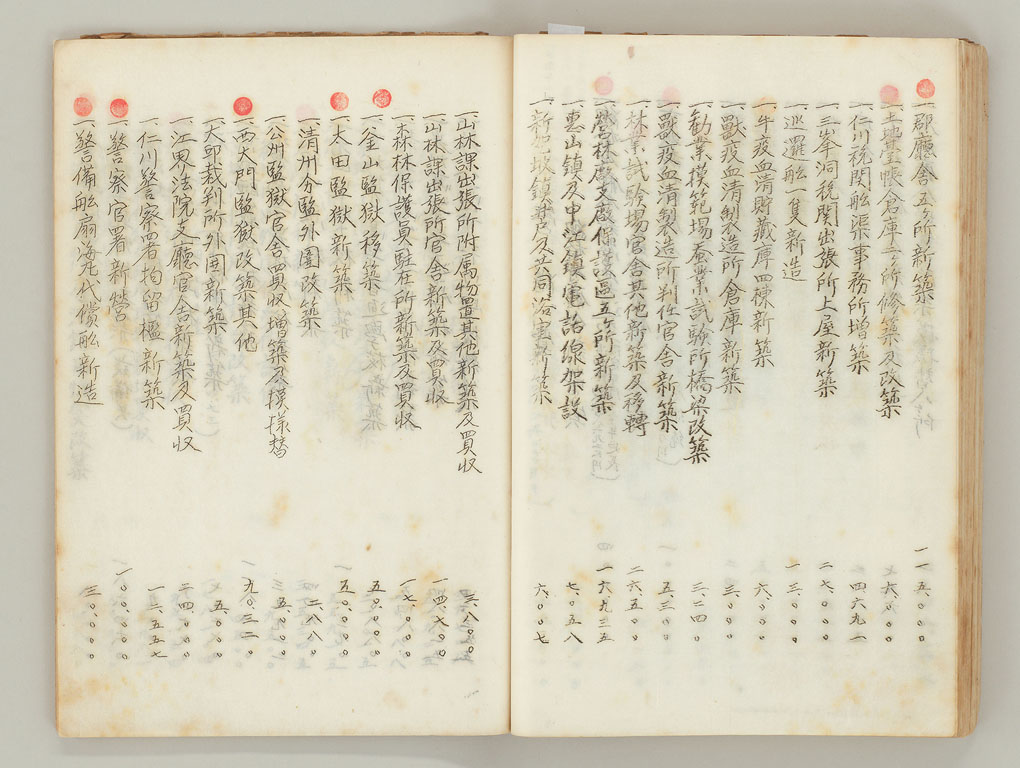 一、郡廳舎五ヶ所新築 一一五、〇〇〇
一、土地臺帳倉庫 所修築及改築 六、〇〇〇
一、仁川税関舩渠事務所増築 四六九一
一、三峯洞税関出張所上屋新築 二七、〇〇
一、巡邏舩一隻新造 一三、〇〇〇
一、牛疫血清貯藏庫四棟新築 六、〇〇〇
一、獸疫血清製造所倉庫新築 三、〇〇〇
一、勧業模範場蚕業試験所橋梁改築 三、二四〇
一、獸疫血清製造所判任官舎新築 五、三〇〇
一、林業試験場官舎其他新築及移轉 二六、五〇〇
一、營林廠支廠保護區五ヶ所新築 一六、九三五
一、惠山鎮及中江鎮電話線架設 七、〇五八
一、新乫坡鎮井戸及共同浴室新築 六、〇〇七
一、山林課出張所附属物置其他新築及買収 三、八〇〇
一、山林課出張所官舎新築及買収 一四、七〇〇
一、森林保護員駐在所新築及買収 一七、〇〇〇
一、釜山監獄移築 五〇、〇〇〇
一、太田監獄新築 五〇、〇〇〇
一、清州分監外圍改築 二、八八〇
一、公州監獄官舎買収増築及模様替 五、〇〇〇
一、西大門監獄改築其他 九〇、三二〇
一、大邱裁判所外囲新築 五、〇〇〇
一、江界法院支廳官舎新築及買収 二四、〇〇〇
一、仁川警察署拘留檻新築 一三、五五七
一、警察官署新營 一〇〇、〇〇〇
一、警備舩扇海丸代償舩新造 三〇、〇〇〇